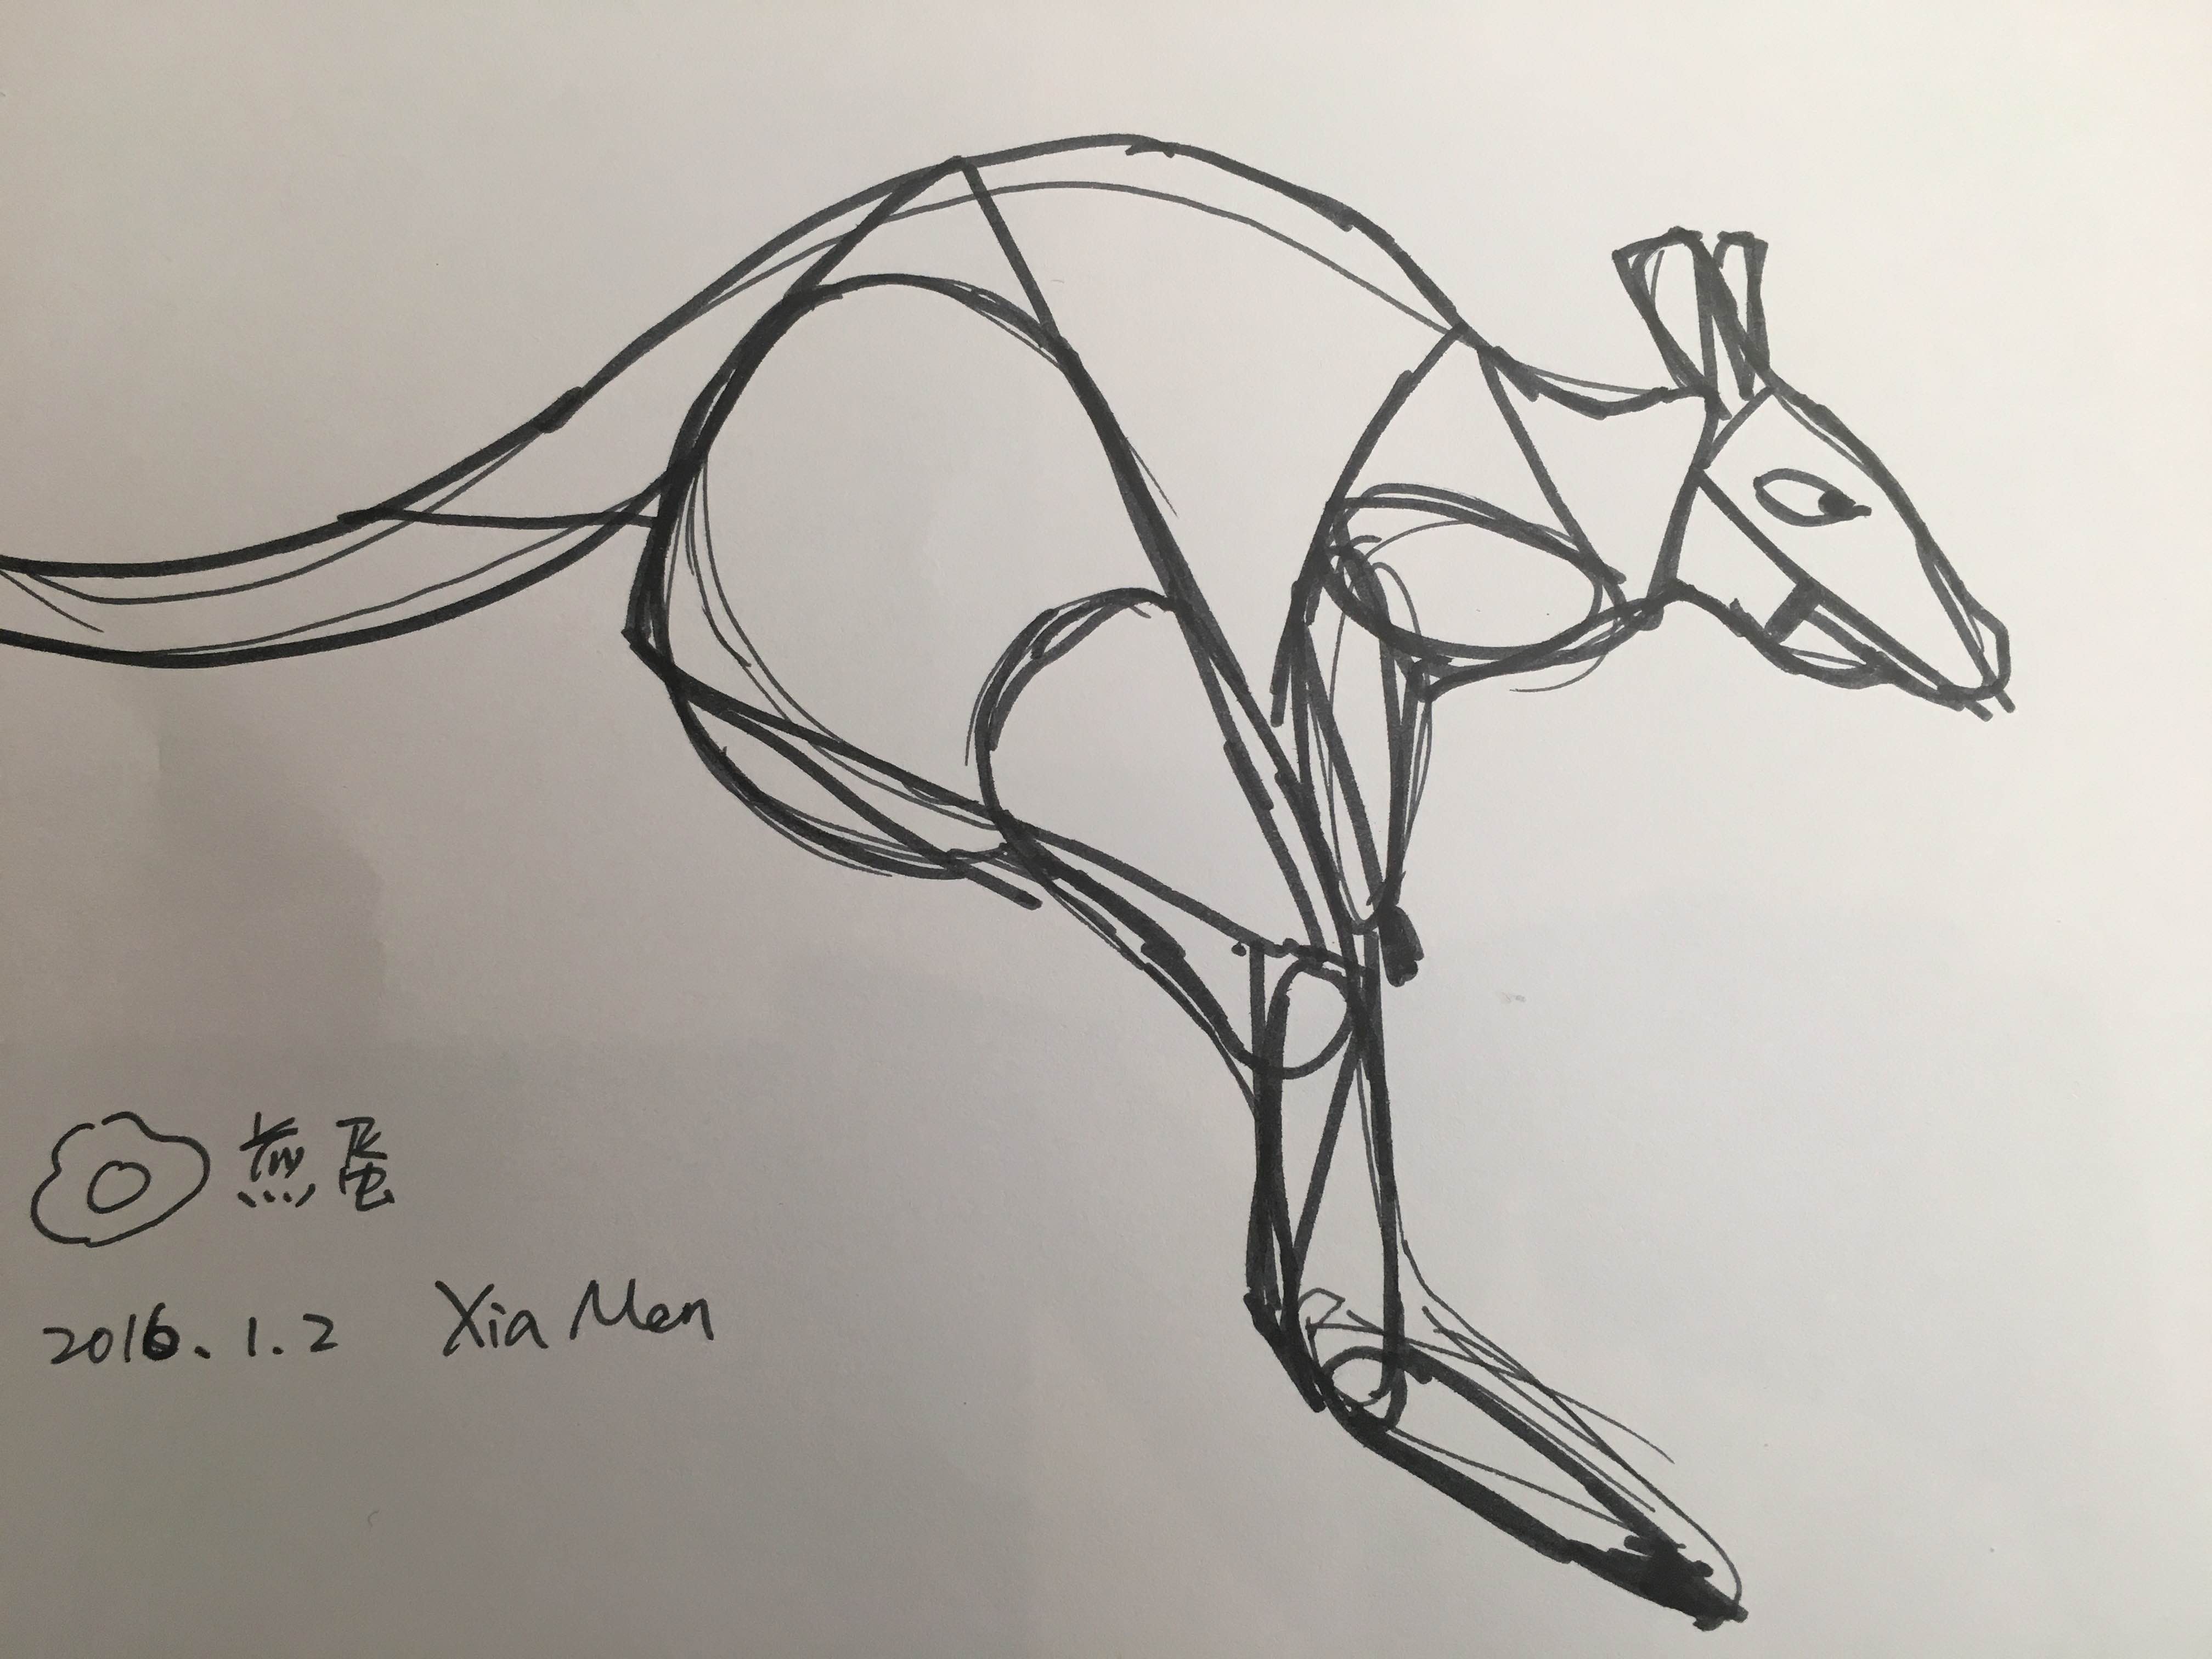 煎蛋
2016.1.2 Xia Men